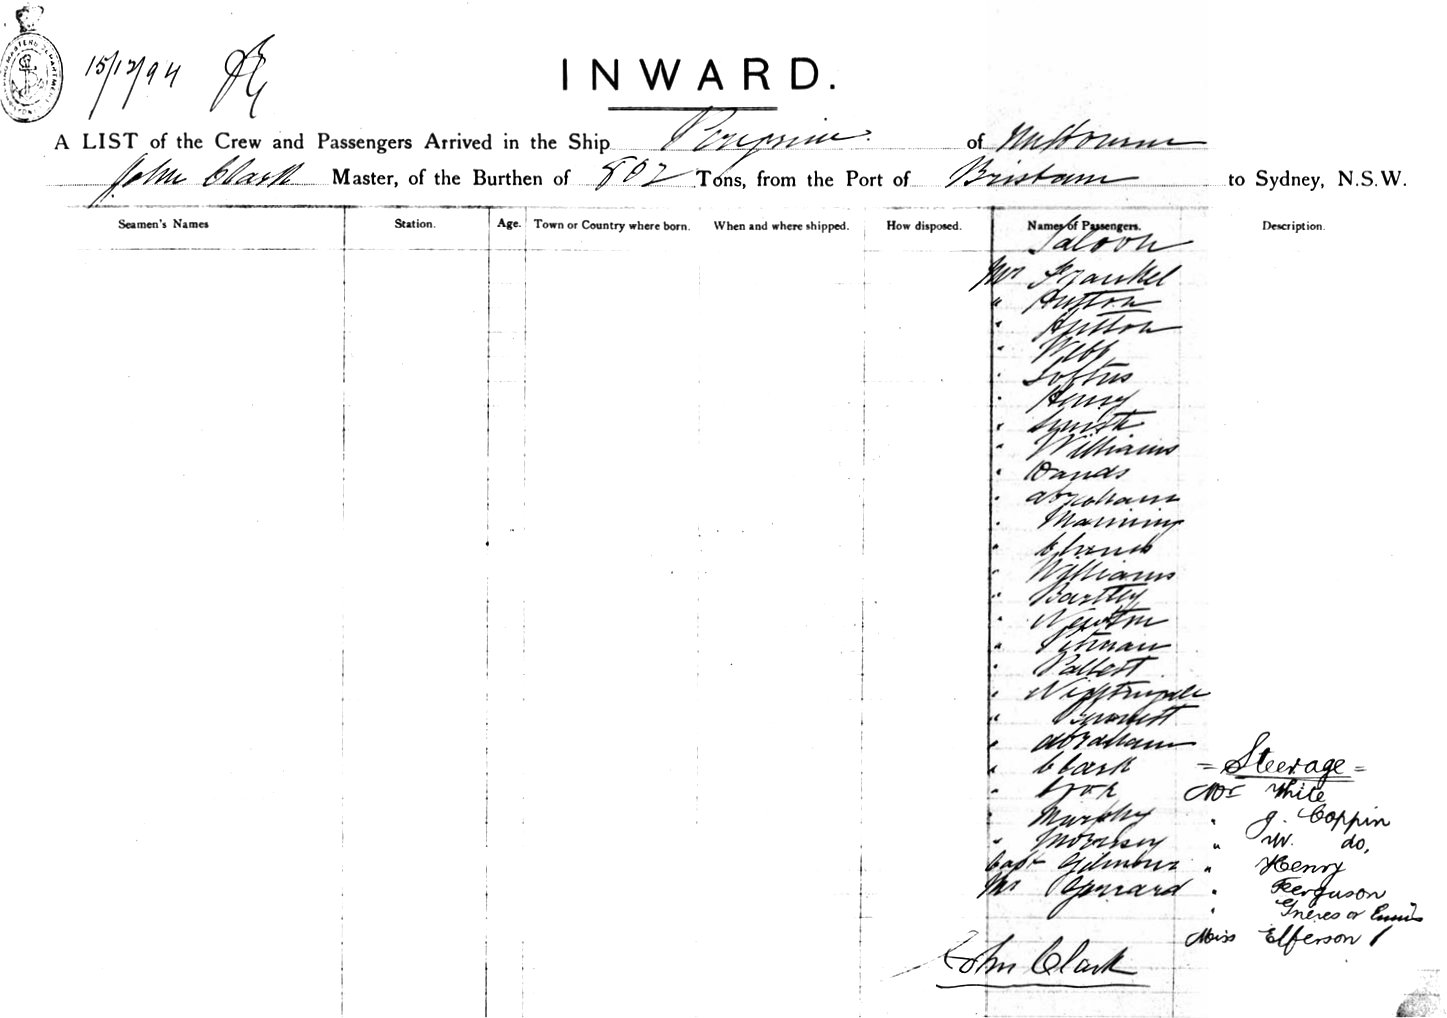 15/12/94
INWARD.
A LIST of the Crew and Passengers Arrived in the Ship Peregrine of Melbourne
John Clark Master, of the Burthen of 802 Tons, from the Port of Brisbane to Sydney, N.S.W.
Seamen's Names Station. Age. Town or Country where born. When and where shipped. How disposed. Names of Passengers. Description.
Saloon
Mr Frankel
" Hutton
" Hutton
" Webb
" Loftus
" Henry
" Smith
" Williams
" Dands
" Abraham
" Manning
"
" Williams
" Bartley
" Newton
" Pitman
"
" Nightingale
"
" Abraham
" Clark
"
" Murphy
" Morrisey
Capt Gilmour
Mr Gerrard
John Clark
= Steerage =
Mr White
" J. Coppin
" W. do,
" Henry
" Ferguson
" or
Miss Elferson 1